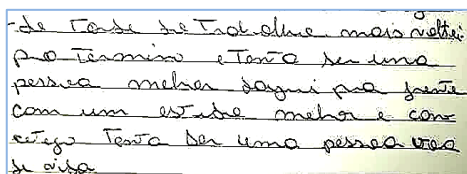 -de Tarde de Trabalhar mais voltei
pra Termino e Tenta ser uma
pessoa melhor daqui pra frente
com um estudo melhor e con
sego Tenta ser uma pessoa boa
de vida